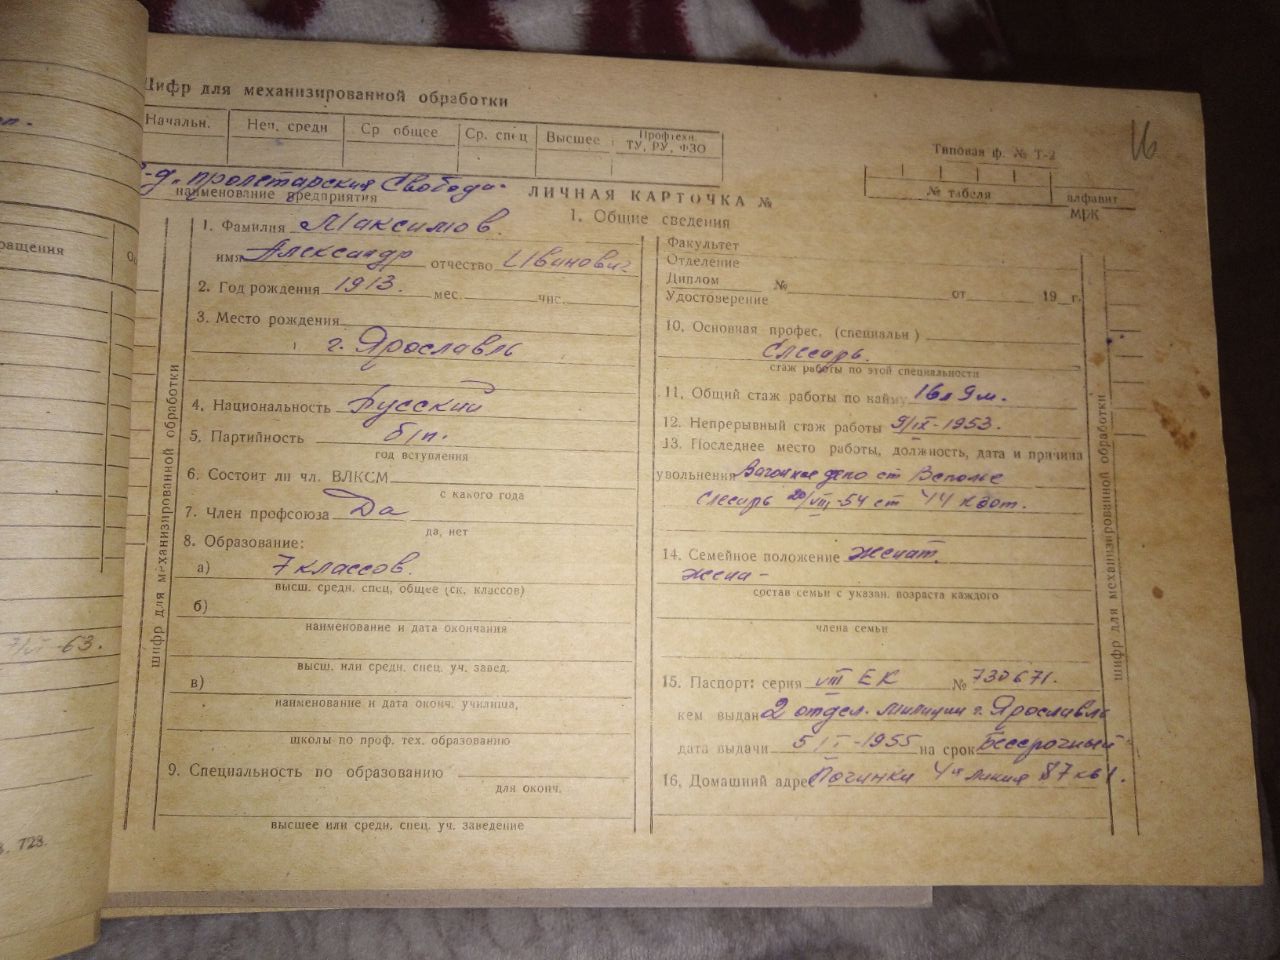 Шифр для механизированной обработки
Начальн. Неп. средн Ср общее Ср. спец Высшее Профтехн. ТУ, РУ, ФЗО
16
Типовая ф. № Т-2
№ табеля алфавит
МРК
з-д „пролетарская Свобода"
наименование предприятия
ЛИЧНАЯ КАРТОЧКА №
1. Общие сведения
1. Фамилия Максимов.
имя Александр отчество Иванович
2. Год рождения 1913. мес. чис.
3. Место рождения
г. Ярославль
4. Национальность Русский
5. Партийность б/п.
год вступления
6. Состоит ли чл. ВЛКСМ
с какого года
7. Член профсоюза Да
да, нет
8. Образование:
а) 7 классов.
высш. средн. спец, общее (ск. классов)
б)
наименование и дата окончания
высш. или средн. спец. уч. завед.
в)
наименование и дата оконч. училища,
школы по проф. тех. образованию
9. Специальность по образованию
для оконч.
высшее или средн. спец. уч. заведение
шифр для механизированной обработки
Факультет
Отделение
Диплом
Удостоверение № от 19 г.
10. Основная профес. (специальн)
Слесарь.
стаж работы по этой специальности
11. Общий стаж работы по найму 16л 9м.
12. Непрерывный стаж работы 9/IX-1953.
13. Последнее место работы, должность, дата и причина
увольнения Вагонное депо ст Всполье
Слесарь 20/VIII-54 ст 44 КЗот.
14. Семейное положение женат.
жена -
состав семьи с указан. возраста каждого
члена семьи
15. Паспорт: серия VIII ЕК № 730671.
кем выдан 2 отдел. милиции г. Ярославль
дата выдачи 5/I-1955 на срок Бессрочный
16. Домашний адрес Починки 4я линия 87 кв 1.
шифр для механизированной обработки
ращения
7/VI-63.
723.